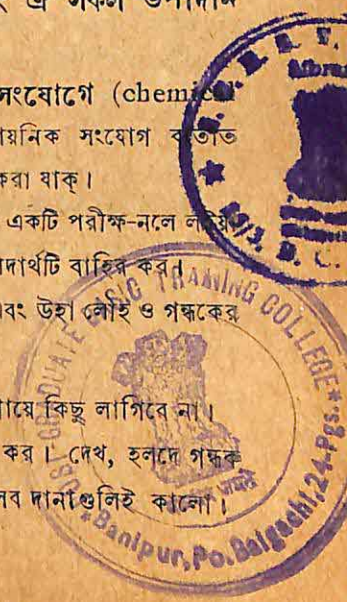 সংযোগে (chemical
য়নিক সংযোগ ব্যতীত
করা যাক্।
একটি পরীক্ষ-নলে লইয়া
দার্থটি বাহির কর।
বং উহা লোহা ও গন্ধকের
ায়ে কিছু লাগিবে না।
কর। দেখ, হলদে গন্ধক
সব দানাগুলিই কালো।
POST GRADUATE BASIC TRAINING COLLEGE
Banipur, Po. Baigachi, 24-Pgs.